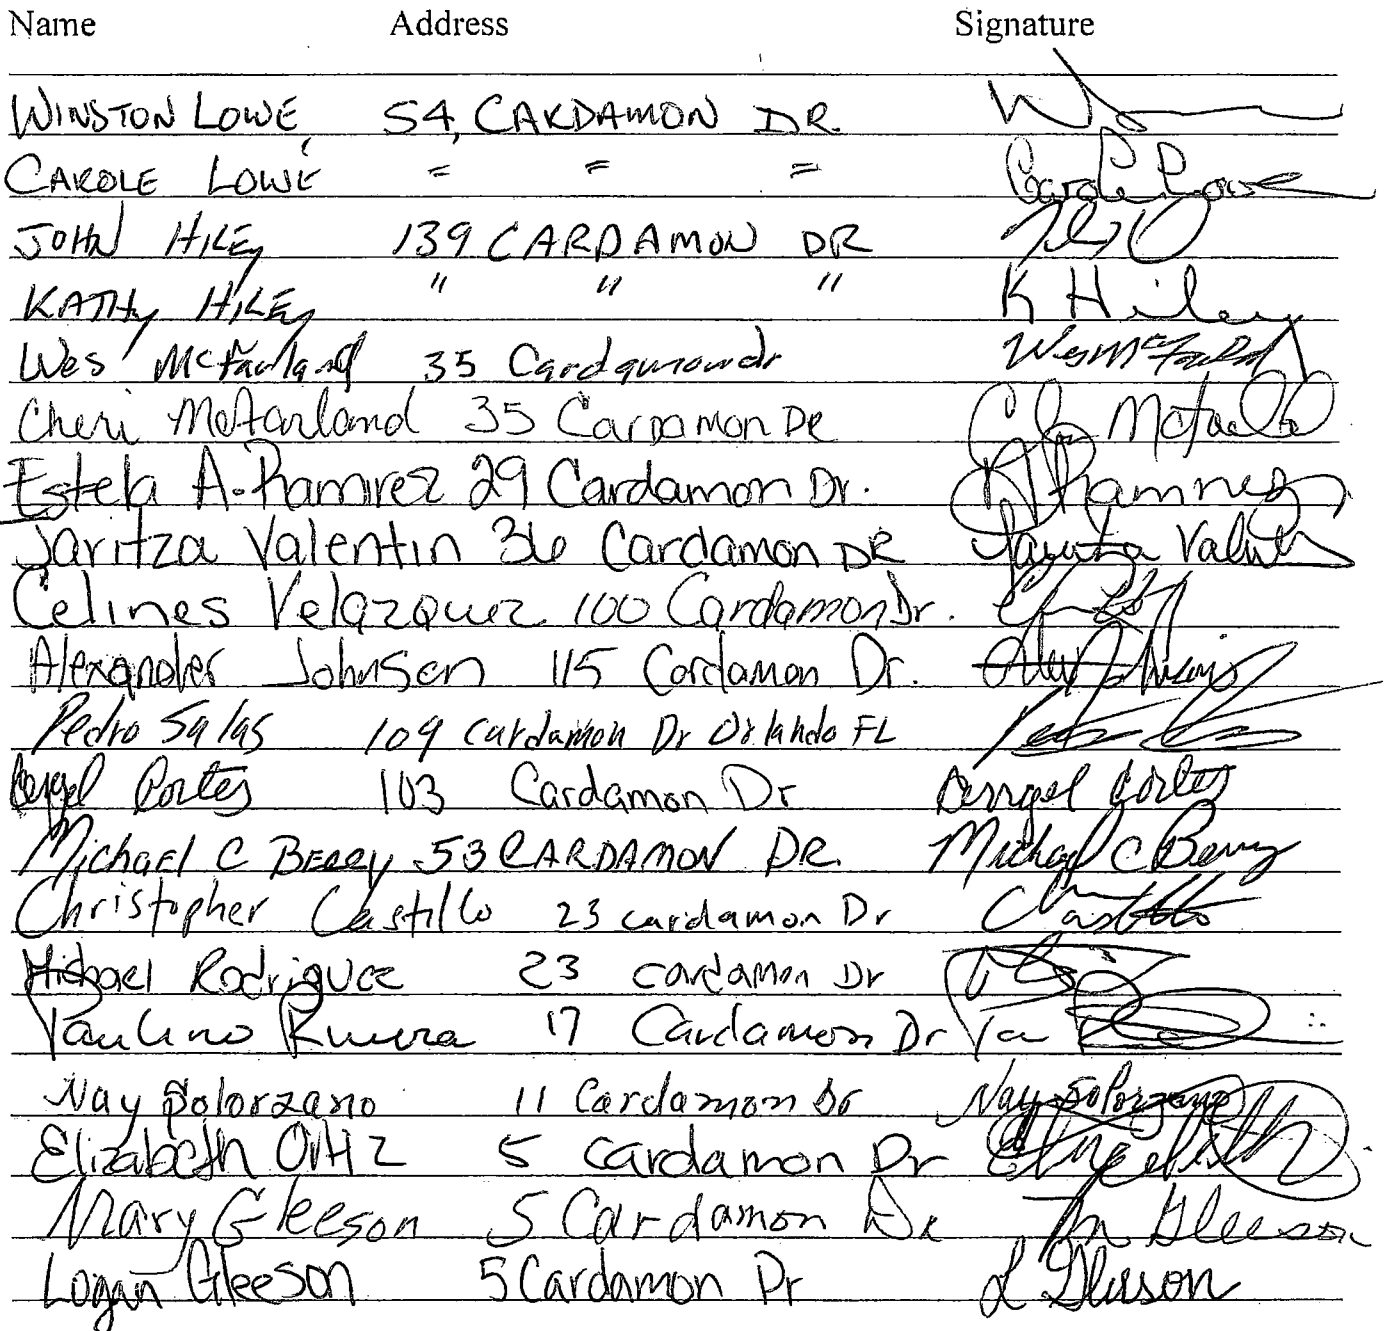 Name Address Signature
WINSTON LOWE, 54, CARDAMON DR.
CAROLE LOWE = = = Carole Lowe
JOHN HILEY 139 CARDAMON DR
KATHY HILEY " " " K Hiley
Wes McFarland 35 Cardamon dr Wes McFarld
Cheri McFarland 35 Cardamon DR McFarld
Estela A. Ramirez 29 Cardamon Dr. Ramirez
Jaritza Valentin 36 Cardamon DR Jaritza Valentin
Celines Velazquez 100 Cardamon Dr.
Alexander Johnson 115 Cardamon Dr.
Pedro Salas 109 Cardamon Dr Orlando FL
Cortes 103 Cardamon Dr Cortes
Michael C BERRY 53 CARDAMON DR. Michael C Berry
Christopher Castillo 23 cardamon Dr Castillo
Michael Rodriguez 23 cardamon Dr
Paulino Rivera 17 Cardamon Dr
Nay Solorzano 11 Cardamon Dr Nay Solorzano
Elizabeth Ortiz 5 cardamon Dr Elizabeth
Mary Gleeson 5 Cardamon DR M Gleeson
Logan Gleeson 5 Cardamon Dr L Gleeson